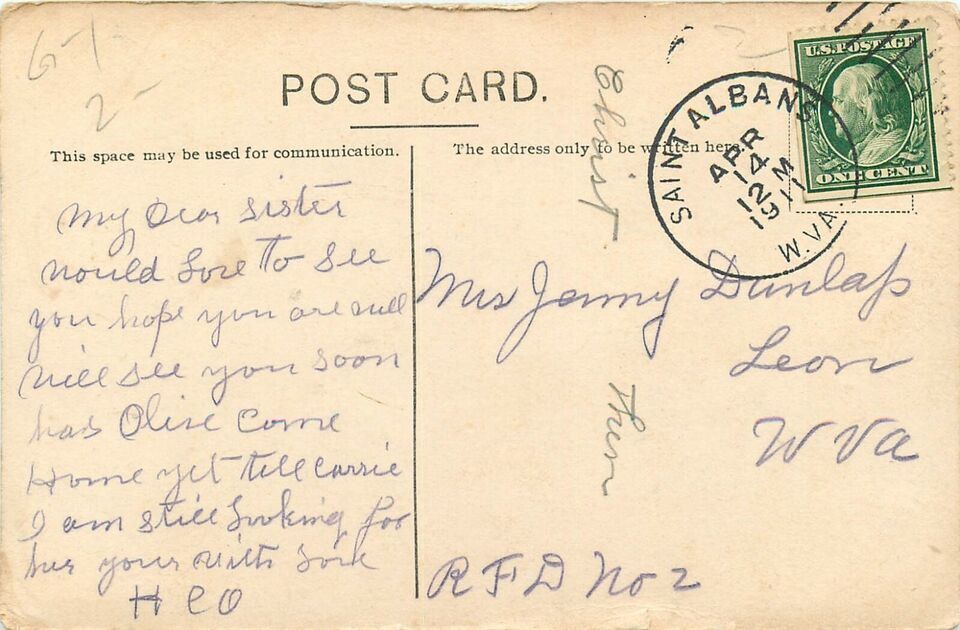 G-1
2-
POST CARD.
This space may be used for communication.
The address only to be written here.
SAINT ALBANS
APR
14
12 M
1911
W. VA.
U.S. POSTAGE
ONE CENT
My Dear Sister
would Love to See
you hope you are well
will See you Soon
has Olive Come
Home yet tell Carrie
I am still Looking for
her yours with Love
H C O
Mrs Jenny Dunlap
Leon
W Va
R F D No 2
Christ